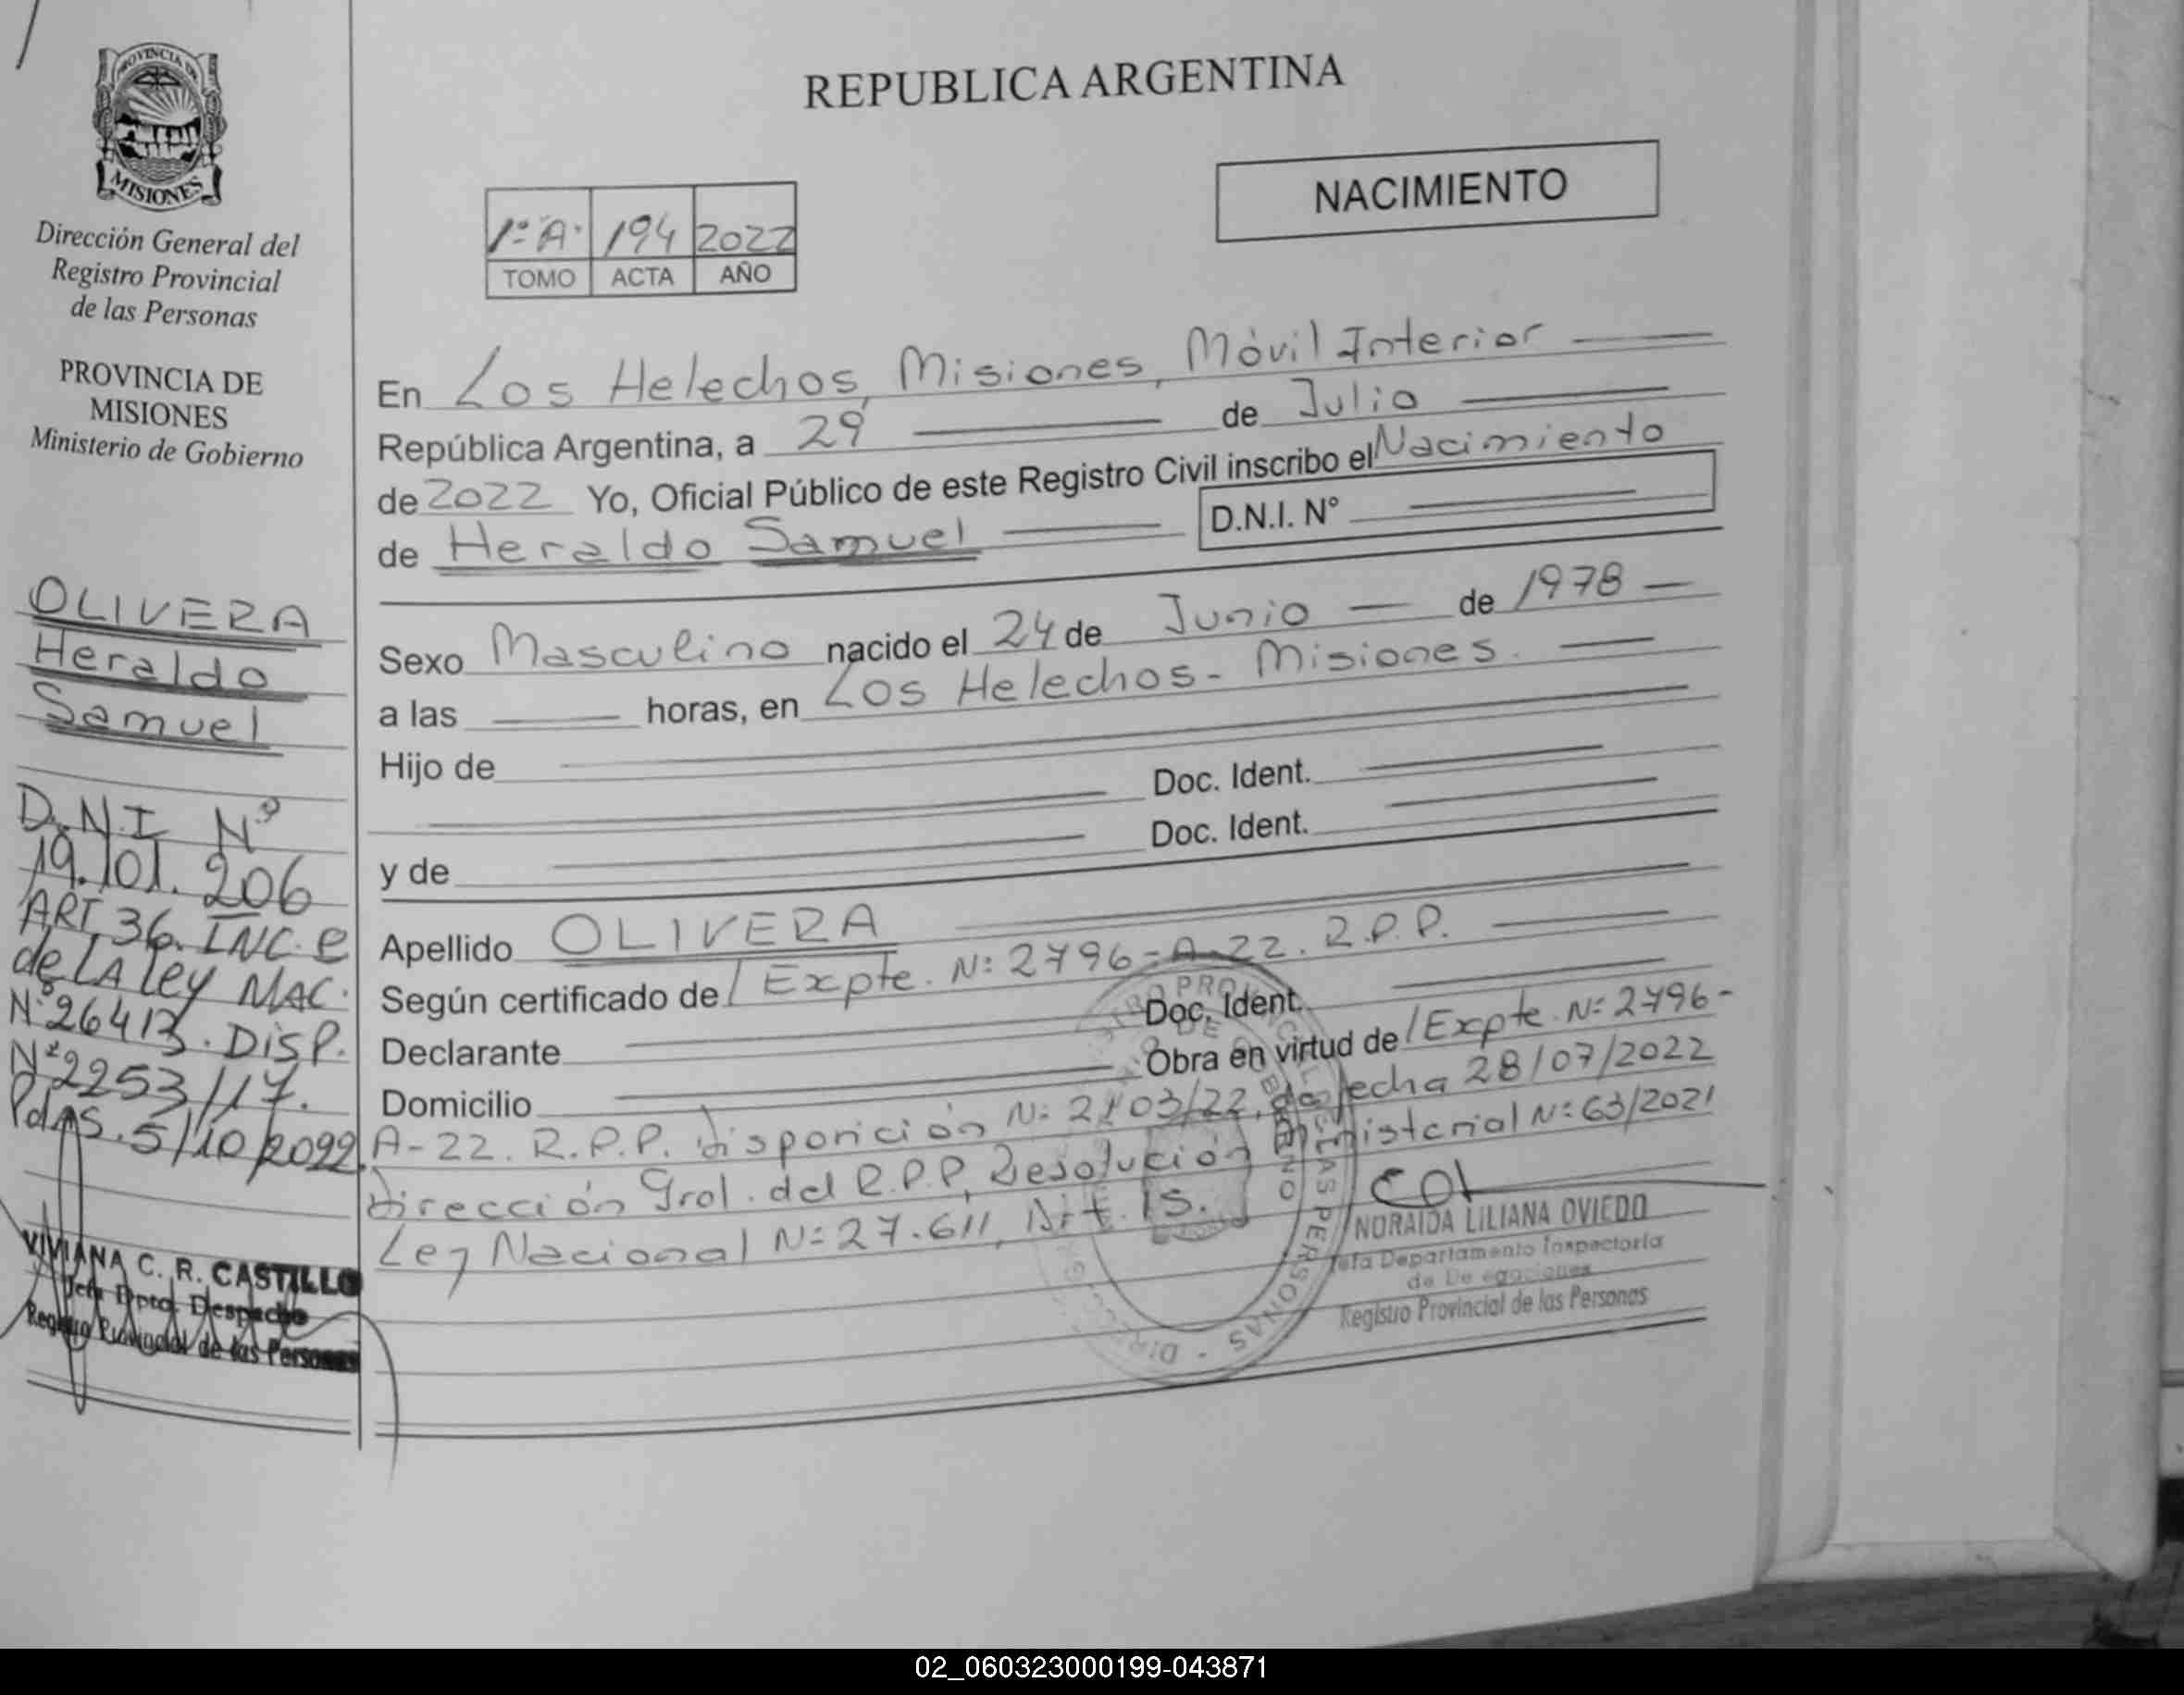 PROVINCIA DE
MISIONES
Dirección General del
Registro Provincial
de las Personas
PROVINCIA DE
MISIONES
Ministerio de Gobierno
OLIVERA
Heraldo
Samuel
D.N.I Nº
19.101.206
ART 36. INC. e
de LA Ley NAC.
Nº26413. DISP.
Nº2253/17.
Pdas. 5/10/2022.
VIVIANA C. R. CASTILLO
Jefa Dpto. Despacho
Registro Provincial de las Personas
REPUBLICA ARGENTINA
NACIMIENTO
1º"A" 194 2022
TOMO ACTA AÑO
En Los Helechos, Misiones, Móvil Interior
República Argentina, a 29 de Julio
de 2022 Yo, Oficial Público de este Registro Civil inscribo el Nacimiento
de Heraldo Samuel D.N.I. Nº
Sexo Masculino nacido el 24 de Junio de 1978
a las horas, en Los Helechos - Misiones.
Hijo de
Doc. Ident.
y de Doc. Ident.
Apellido OLIVERA
Según certificado de/ Expte. Nº 2796-A-22. R.P.P.
Declarante Doc. Ident.
Domicilio Obra en virtud de/ Expte. Nº 2796-
A-22. R.P.P. disposición Nº 2103/22, de fecha 28/07/2022
Dirección Gral. del R.P.P, Resolución Ministerial Nº 63/2021
Ley Nacional Nº 27.611, Art. 15.
NORAIDA LILIANA OVIEDO
Jefa Departamento Inspectoría
de Delegaciones
Registro Provincial de las Personas
02_060323000199-043871